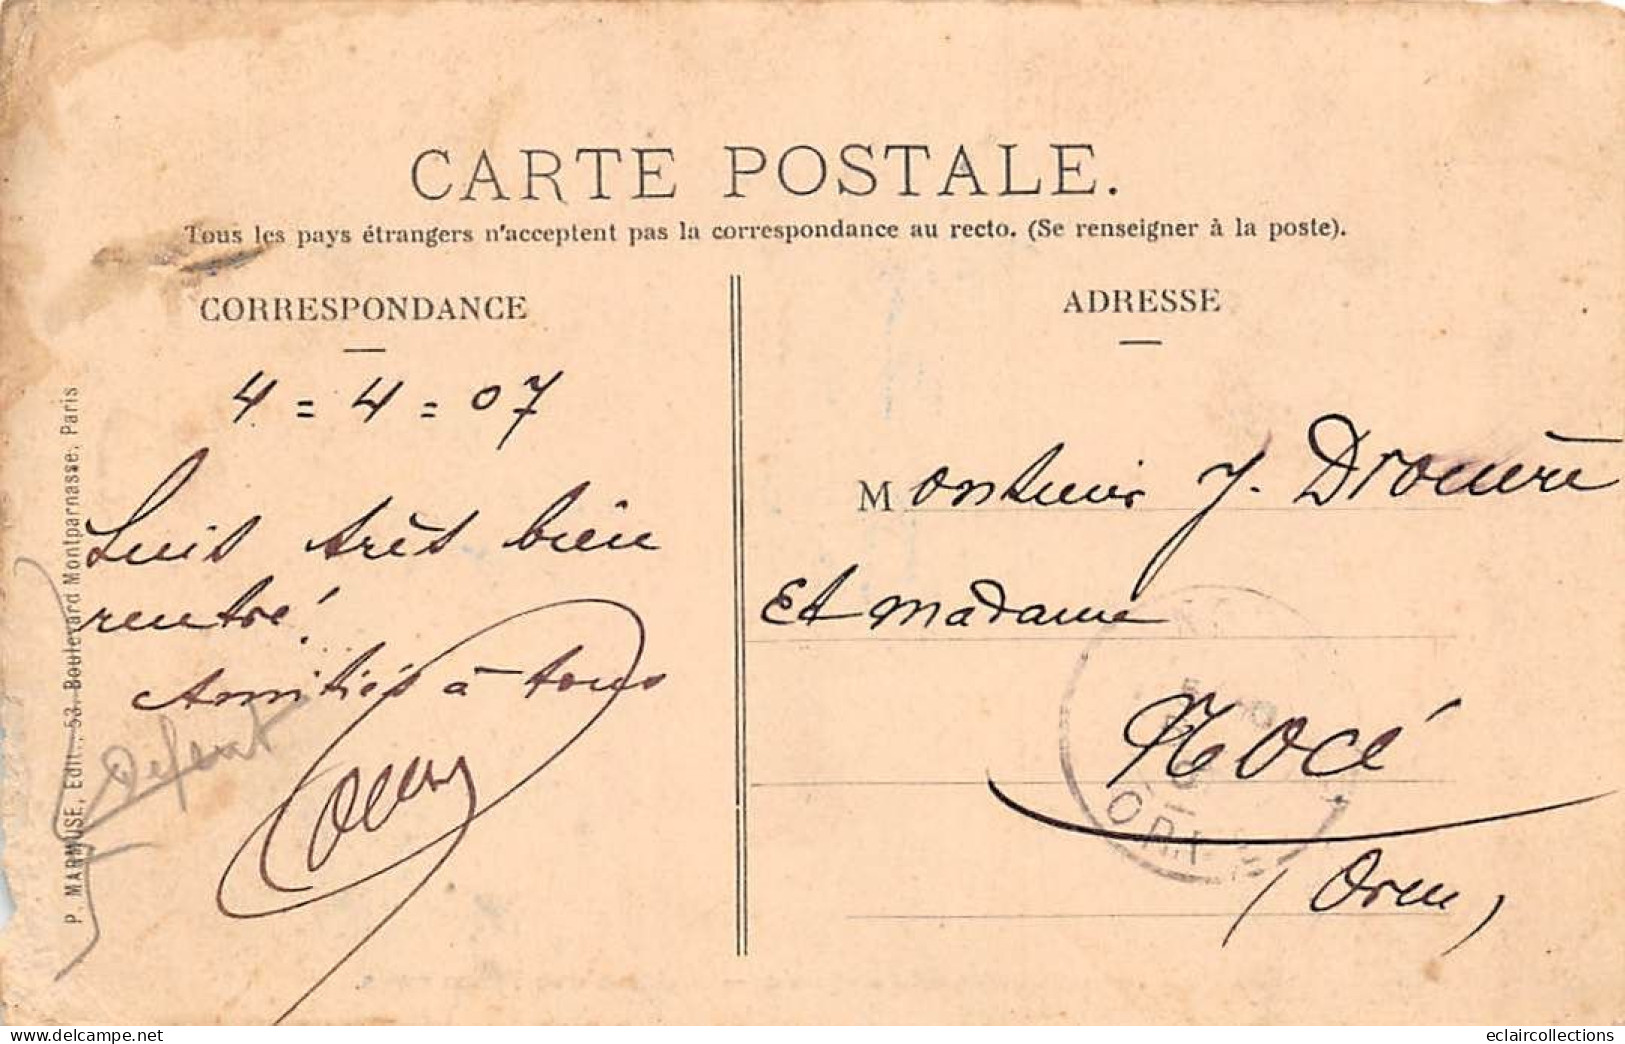 CARTE POSTALE.
Tous les pays étrangers n'acceptent pas la correspondance au recto. (Se renseigner à la poste).
CORRESPONDANCE
4 = 4 = 07
Suis très bien
rentré!
Amitiés à tous
P. MARMUSE, Edit., 53, Boulevard Montparnasse, Paris
Defaut
ADRESSE
Monsieur J. Drouère
Et madame
Nocé
(Orne)
ORNE
eclaircollections